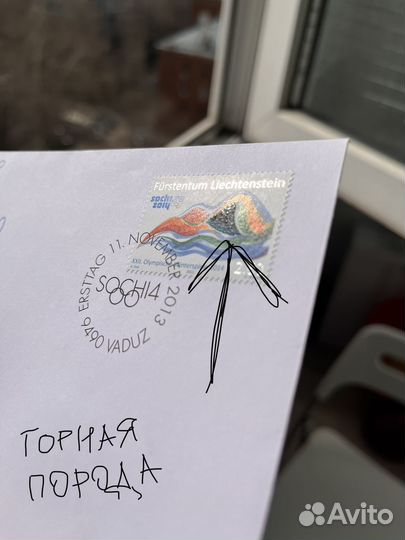 Fürstentum Liechtenstein
sochi.ru
2014
XXII. Olympische Winterspiele 2014
ERSTTAG 11. NOVEMBER 2013
SOCHI14
9490 VADUZ
ГОРНАЯ
ПОРОДА
Avito